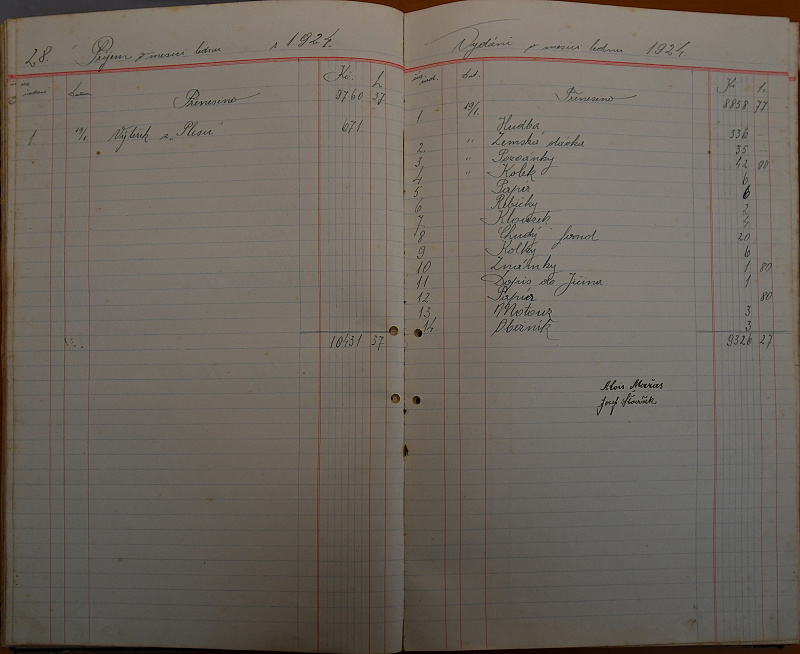 28. Příjem v měsíci lednu r 1924.
Kč. h.
Přeneseno 9760 37
1. 19/1 Výtěžek z "Plesu" 671
10431 37
Vydání v měsíci lednu 1924.
Kč h.
Přeneseno 8858 77
1. 19/1. Hudba 336
2. " Zemská dávka 35
3 " Pozvánky 42 80
4 " Kolek 6
5 Papír 6
6 Ribičky 2
7 Klouzek
8 Chudý fond 20
9 Kolky 6
10 Známky 1 80
11 Dopis do Jičína 1
12 Papír 80
13 Motouz 3
14. Oberník 3
9326 27
Alois Mareš
Josef